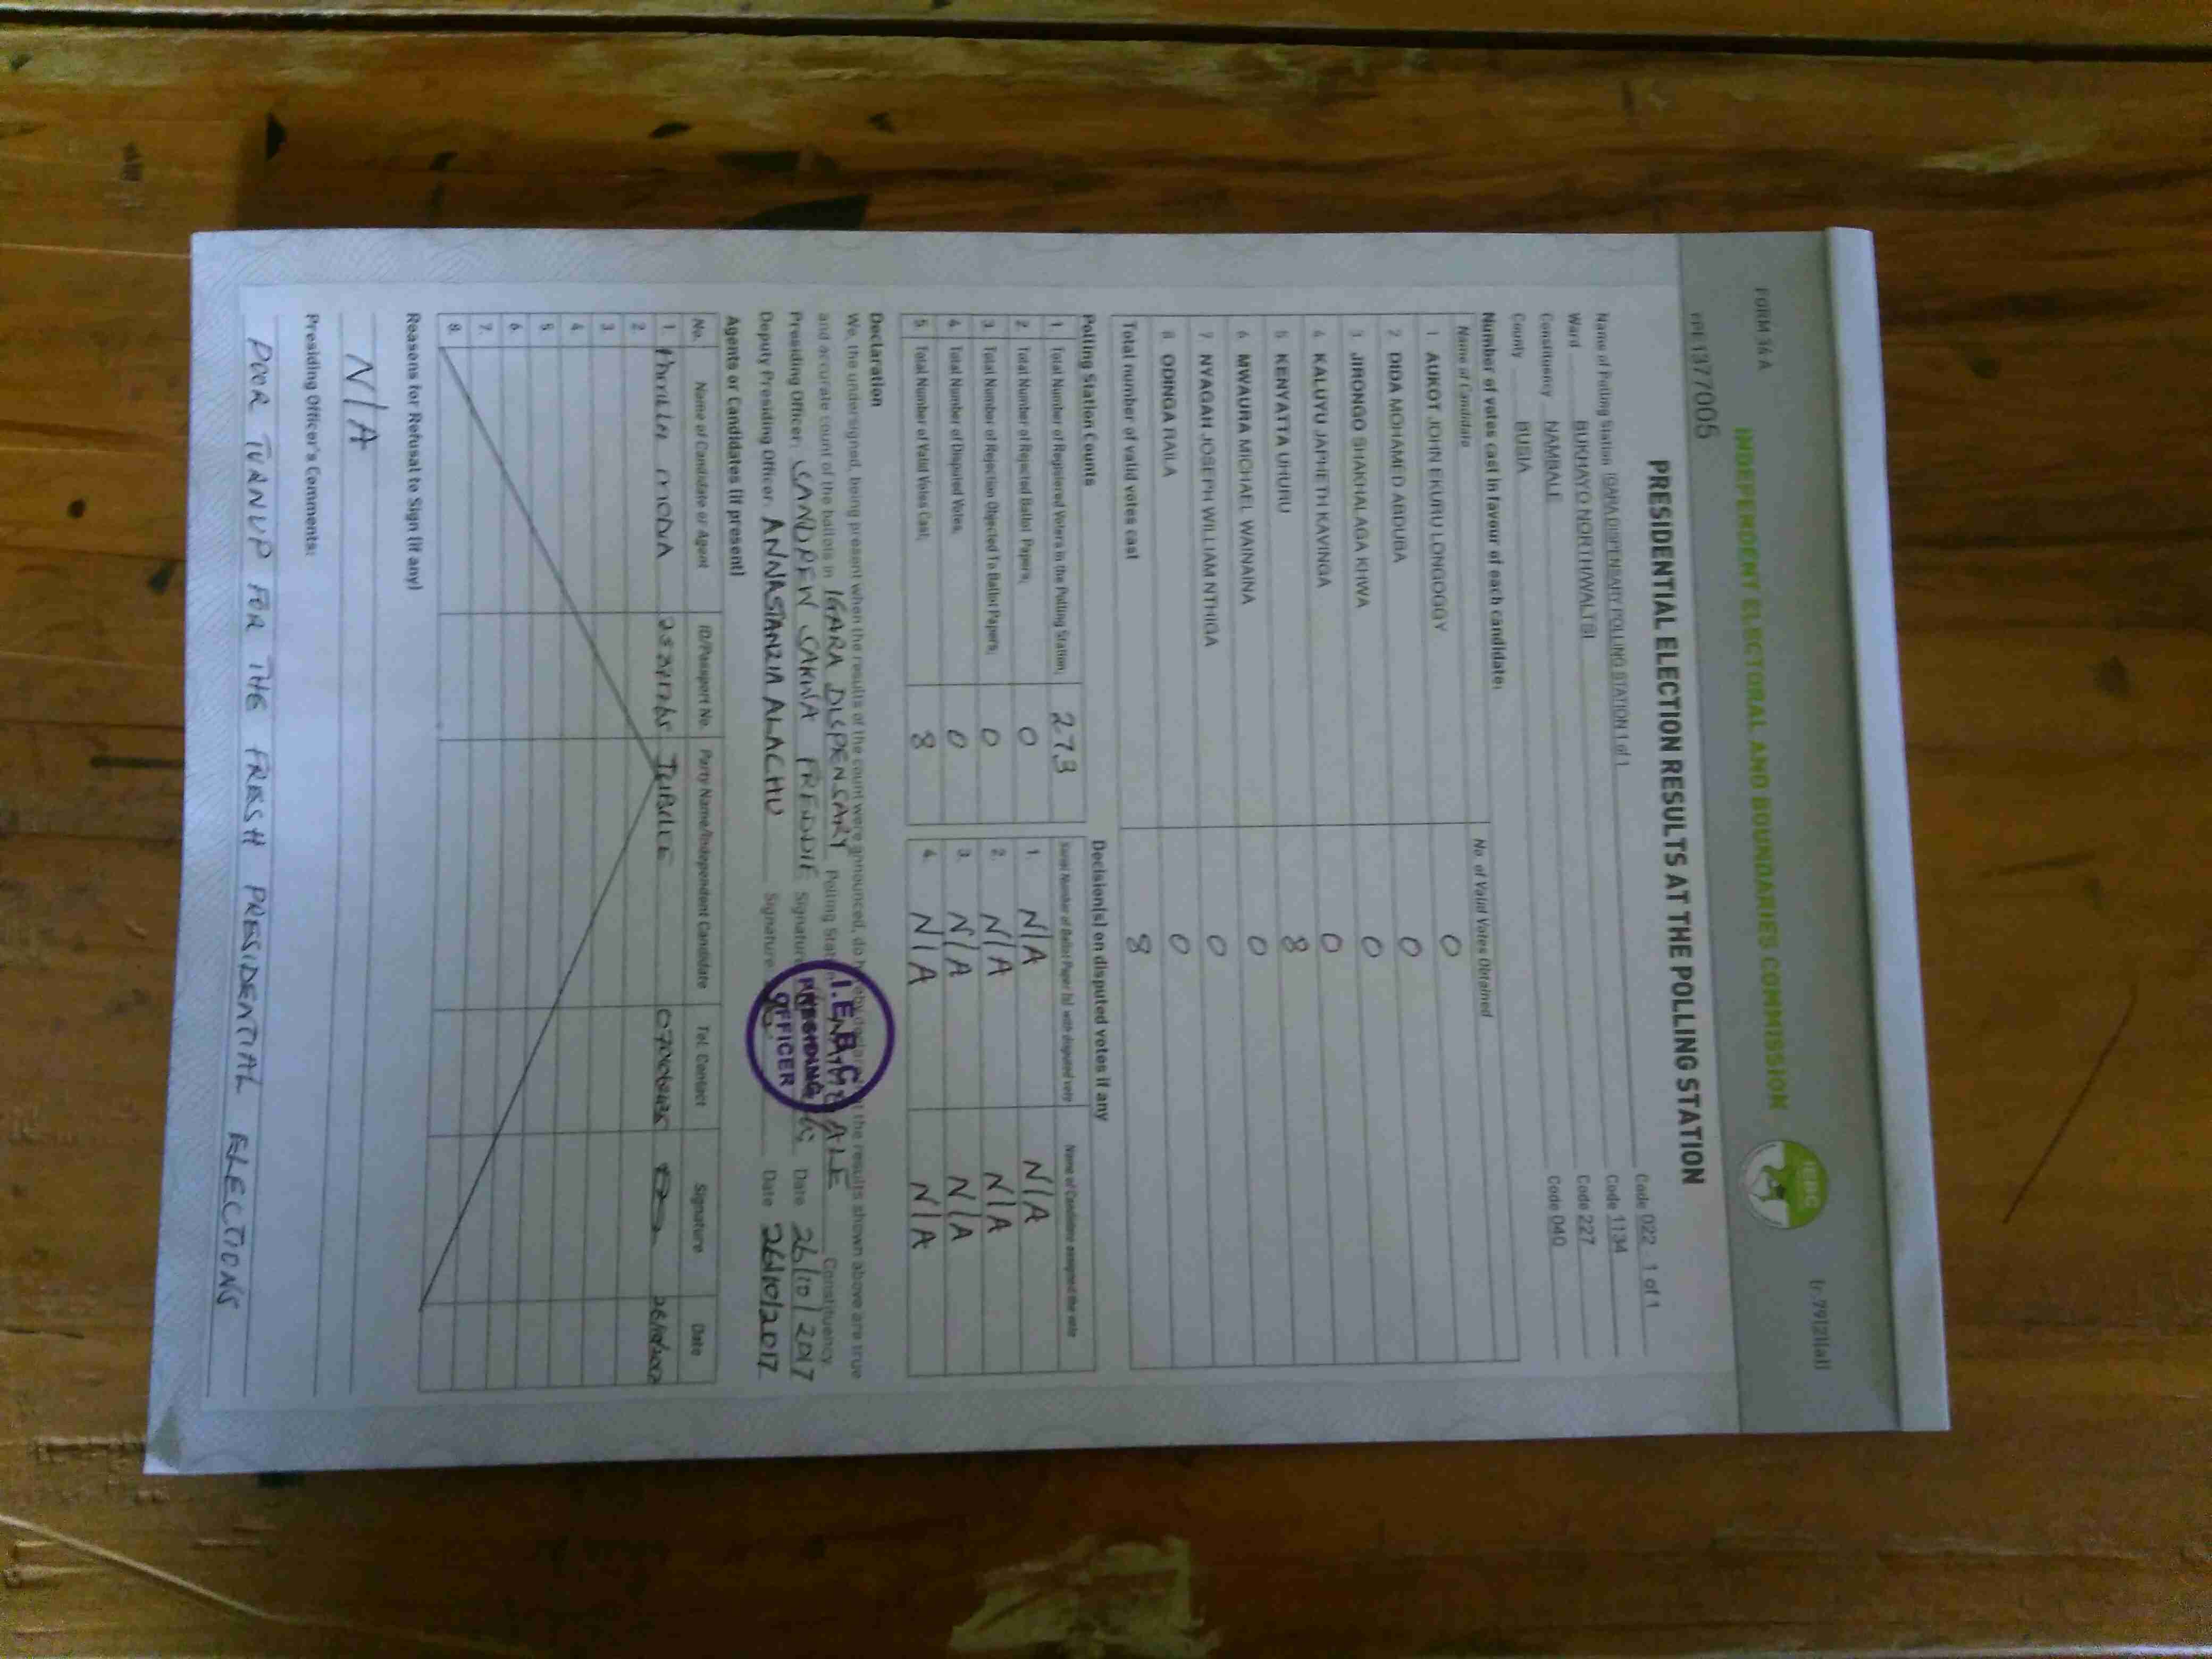 FORM 34A
(r.79(2)(a))
INDEPENDENT ELECTORAL AND BOUNDARIES COMMISSION
IEBC
PRESIDENTIAL ELECTION RESULTS AT THE POLLING STATION
Name of Polling Station IGARA DISPENSARY POLLING STATION 1 of 1 Code 022 1 of 1
Ward BUKHAYO NORTH/WALTSI Code 1134
Constituency NAMBALE Code 227
County BUSIA Code 040
Number of votes cast in favour of each candidate:
Name of Candidate No. of Valid Votes Obtained
1 AUKOT JOHN EKURU LONGOGGY 0
2 DIDA MOHAMED ABDUBA 0
3 JIRONGO SHAKHALAGA KHWA 0
4 KALUYU JAPHETH KAVINGA 0
5 KENYATTA UHURU 8
6 MWAURA MICHAEL WAINAINA 0
7 NYAGAH JOSEPH WILLIAM NTHIGA 0
8 ODINGA RAILA 0
Total number of valid votes cast 8
Polling Station Counts Decision(s) on disputed votes if any
1. Total Number of Registered Voters in the Polling Station; 273 Serial Number of Ballot Paper (s) with disputed vote Name of Candidate assigned the vote
2. Total Number of Rejected Ballot Papers; 0 1. N/A N/A
3. Total Number of Rejection Objected To Ballot Papers; 0 2. N/A N/A
4. Total Number of Disputed Votes; 0 3. N/A N/A
5. Total Number of Valid Votes Cast; 8 4. N/A N/A
Declaration
We, the undersigned, being present when the results of the count were announced, do hereby declare that the results shown above are true
and accurate count of the ballots in IGARA DISPENSARY Polling Station NAMBALE Constituency
Presiding Officer; FREDDIE Signature Date 26/10/2017
Deputy Presiding Officer. ANNASTANZIA ALACHU Signature: Date 26/10/2017
I.E.B.C
PRESIDING
OFFICER
Agents or Candidates (if present)
No. Name of Candidate or Agent ID/Passport No. Party Name/Independent Candidate Tel. Contact Signature Date
1. JUBILEE 26/10/2017
2.
3.
4.
5.
6.
7.
8.
Reasons for Refusal to Sign (if any)
N/A
Presiding Officer's Comments:
POOR TURNUP FOR THE FRESH PRESIDENTIAL ELECTIONS